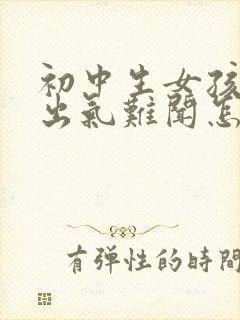 初中生女孩
出氣難聞怎
有弹性的時間